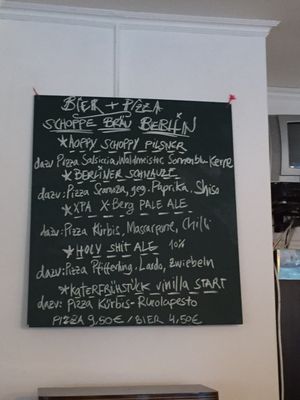 BIER + PIZZA
SCHOPPE BRÄU BERLIN
* HOPPY SCHOPPY PILSNER
dazu Pizza Salsiccia, Waldmeister, Sonnenbl. Kerne
* BERLINER SCHNAUZE
dazu: Pizza Scamorza, geg. Paprika, Shiso
* XPA X-Berg PALE ALE
dazu: Pizza Kürbis, Mascarpone, Chili
* HOLY SHIT ALE 10%
dazu: Pizza Pfifferling, Lardo, Zwiebeln
* KATERFRÜHSTÜCK vinilla START
dazu: Pizza Kürbis-Rucolapesto
PIZZA 9,50€ / BIER 4,50€